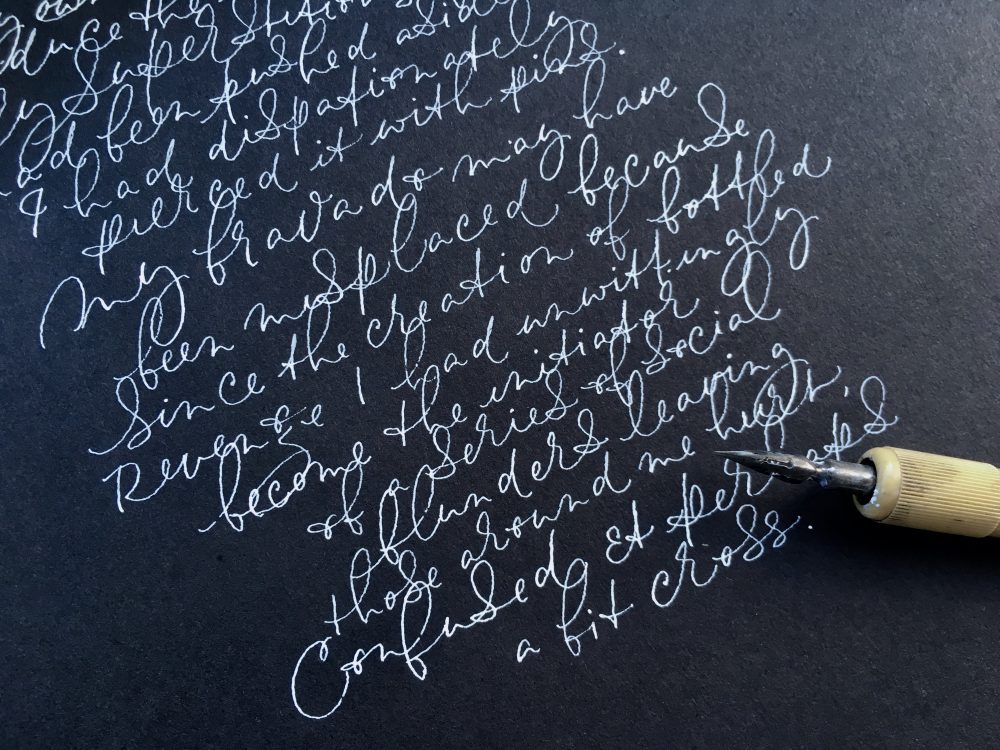 duce the
Superstition
ad been pushed aside
I had dispationately
pierced it with pins.
My bravado may have
been misplaced because
Since the creation of bottled
Revenge I had unwittingly
become the initiator
of a series of social
blunders leaving
those around me hurt,
Confused, et perhaps
a bit cross.